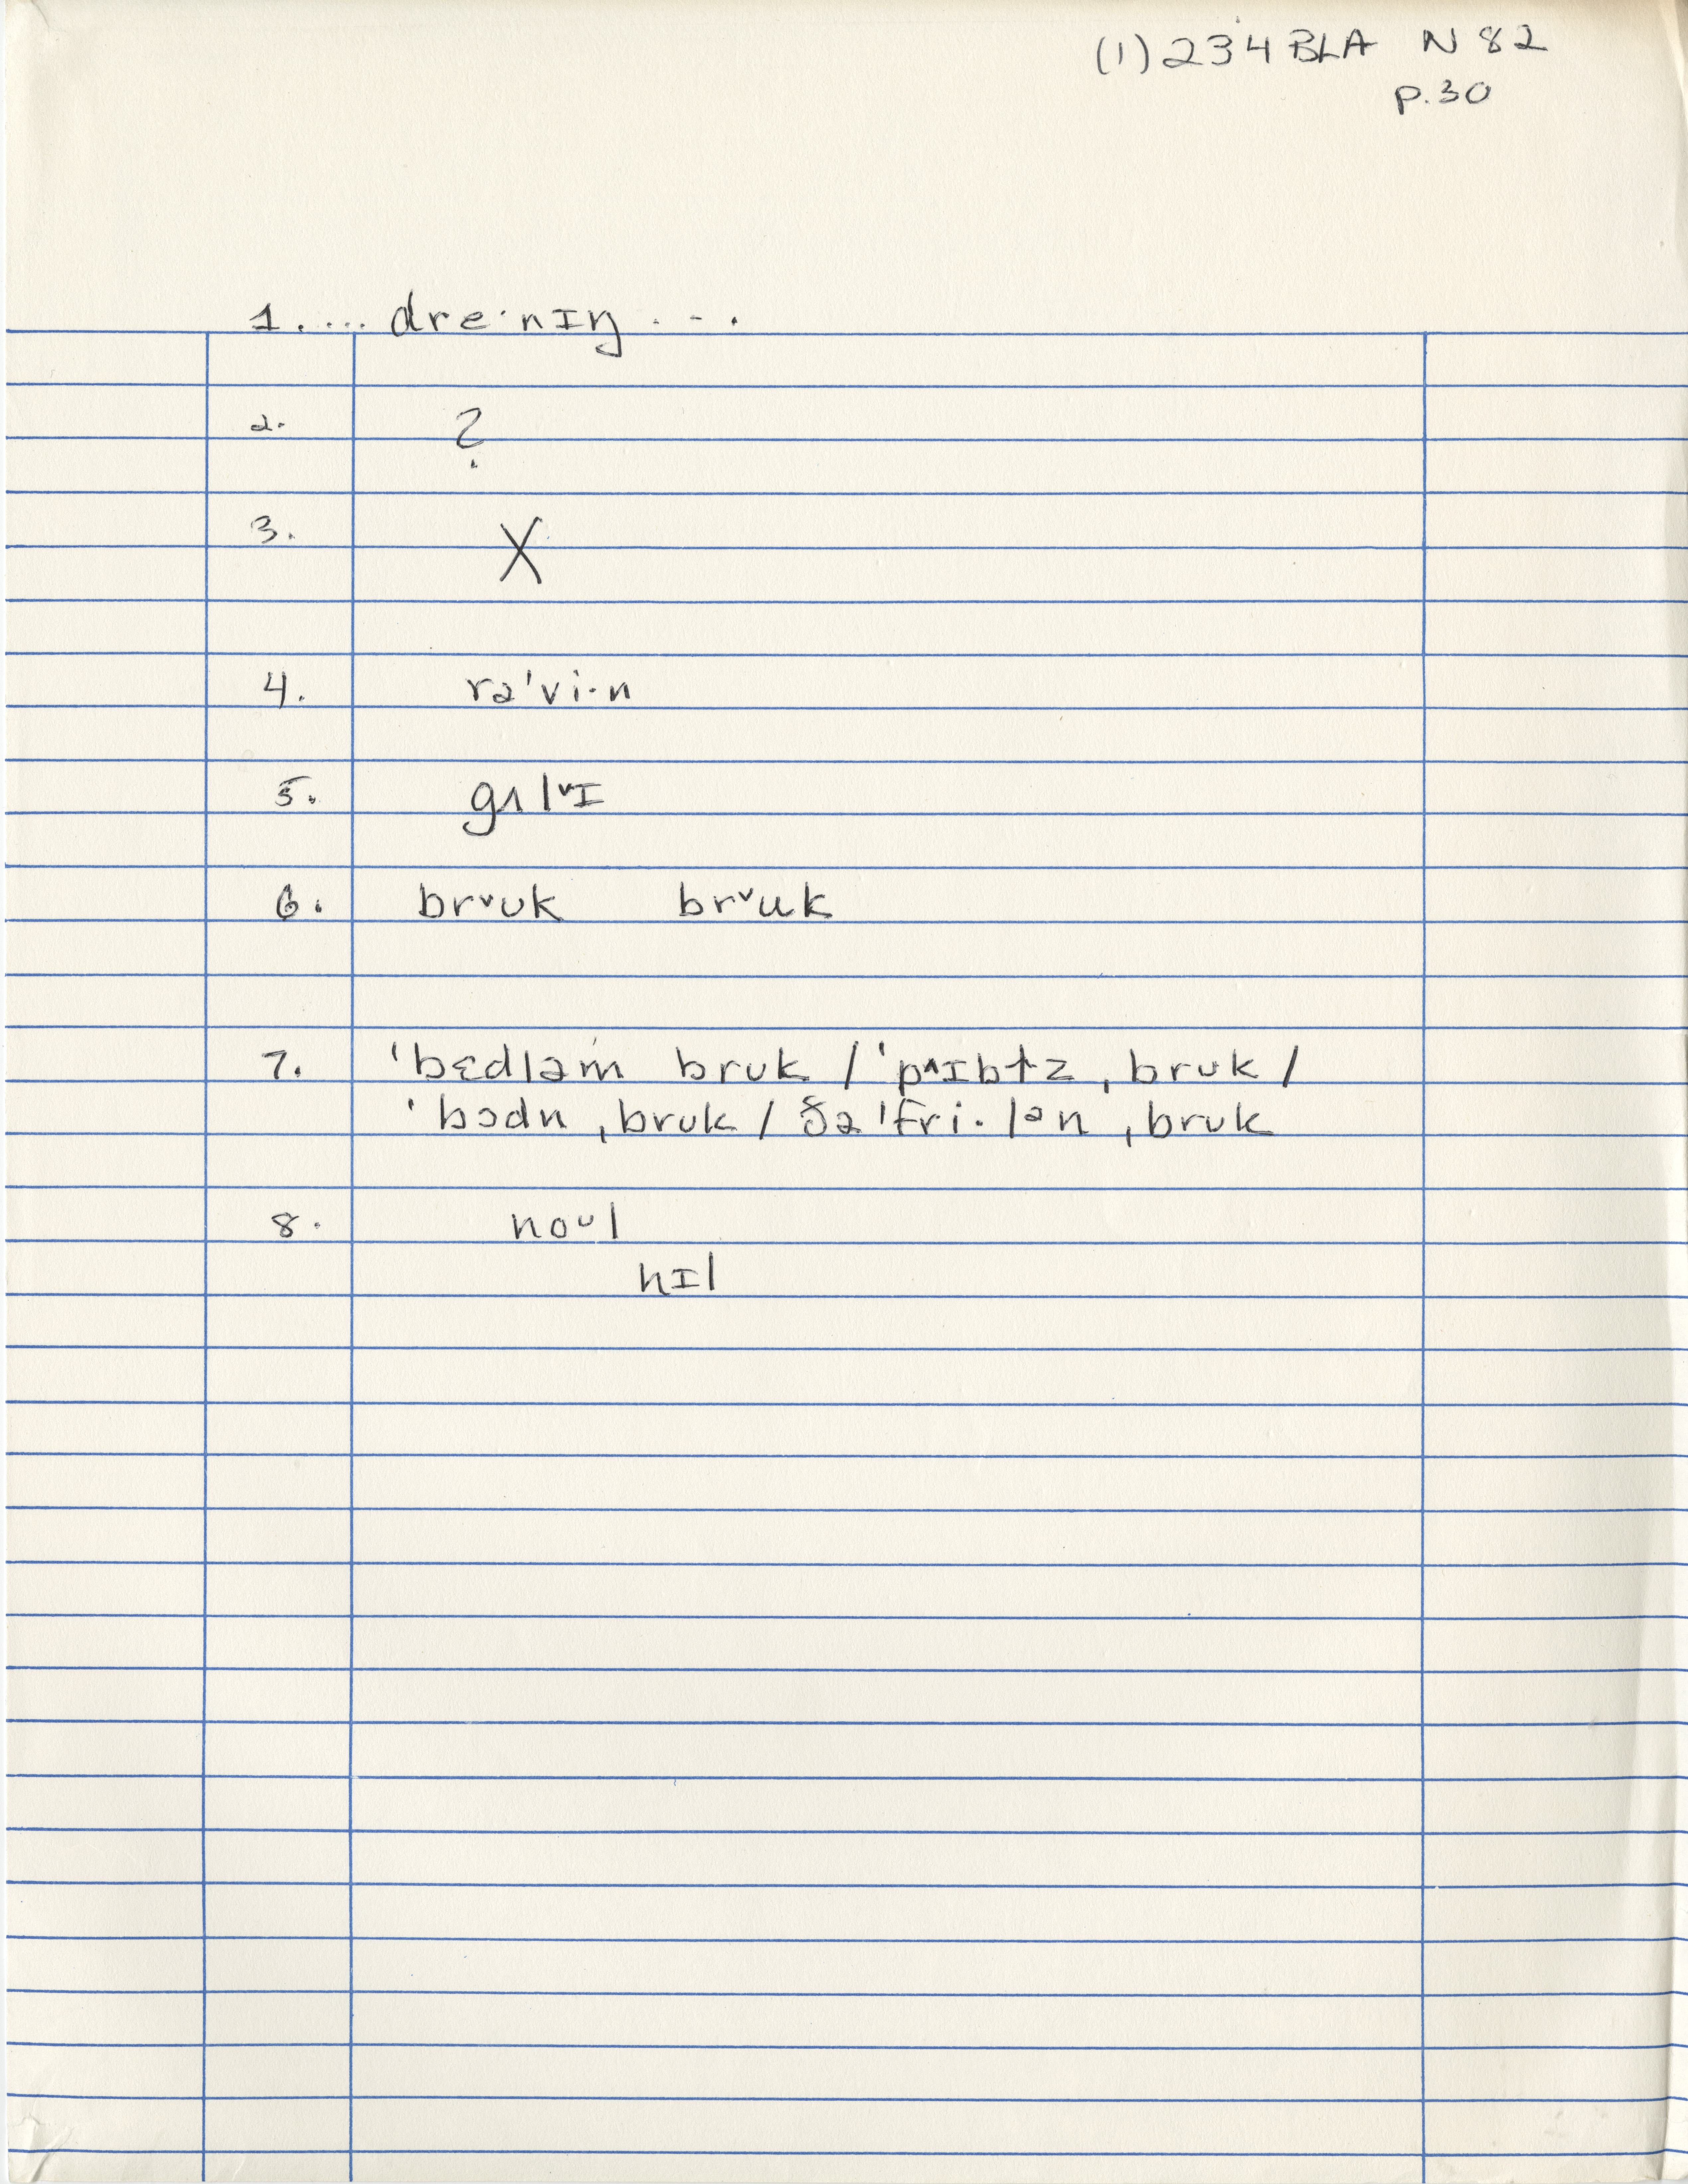 (1) 234 BLA N 82
p. 30
1. ... dre·nɪŋ ...
2. ?
3. X
4. rə'vi·n
5. gʌlᵛɪ
6. brᵛʊk brᵛuk
7. 'bɛdləm brʊk / 'p^ɪbɫz ˌbrʊk /
'bɔdn ˌbrʊk / ðə 'fri·lən ˌbrʊk
8. noᴜl
hɪl